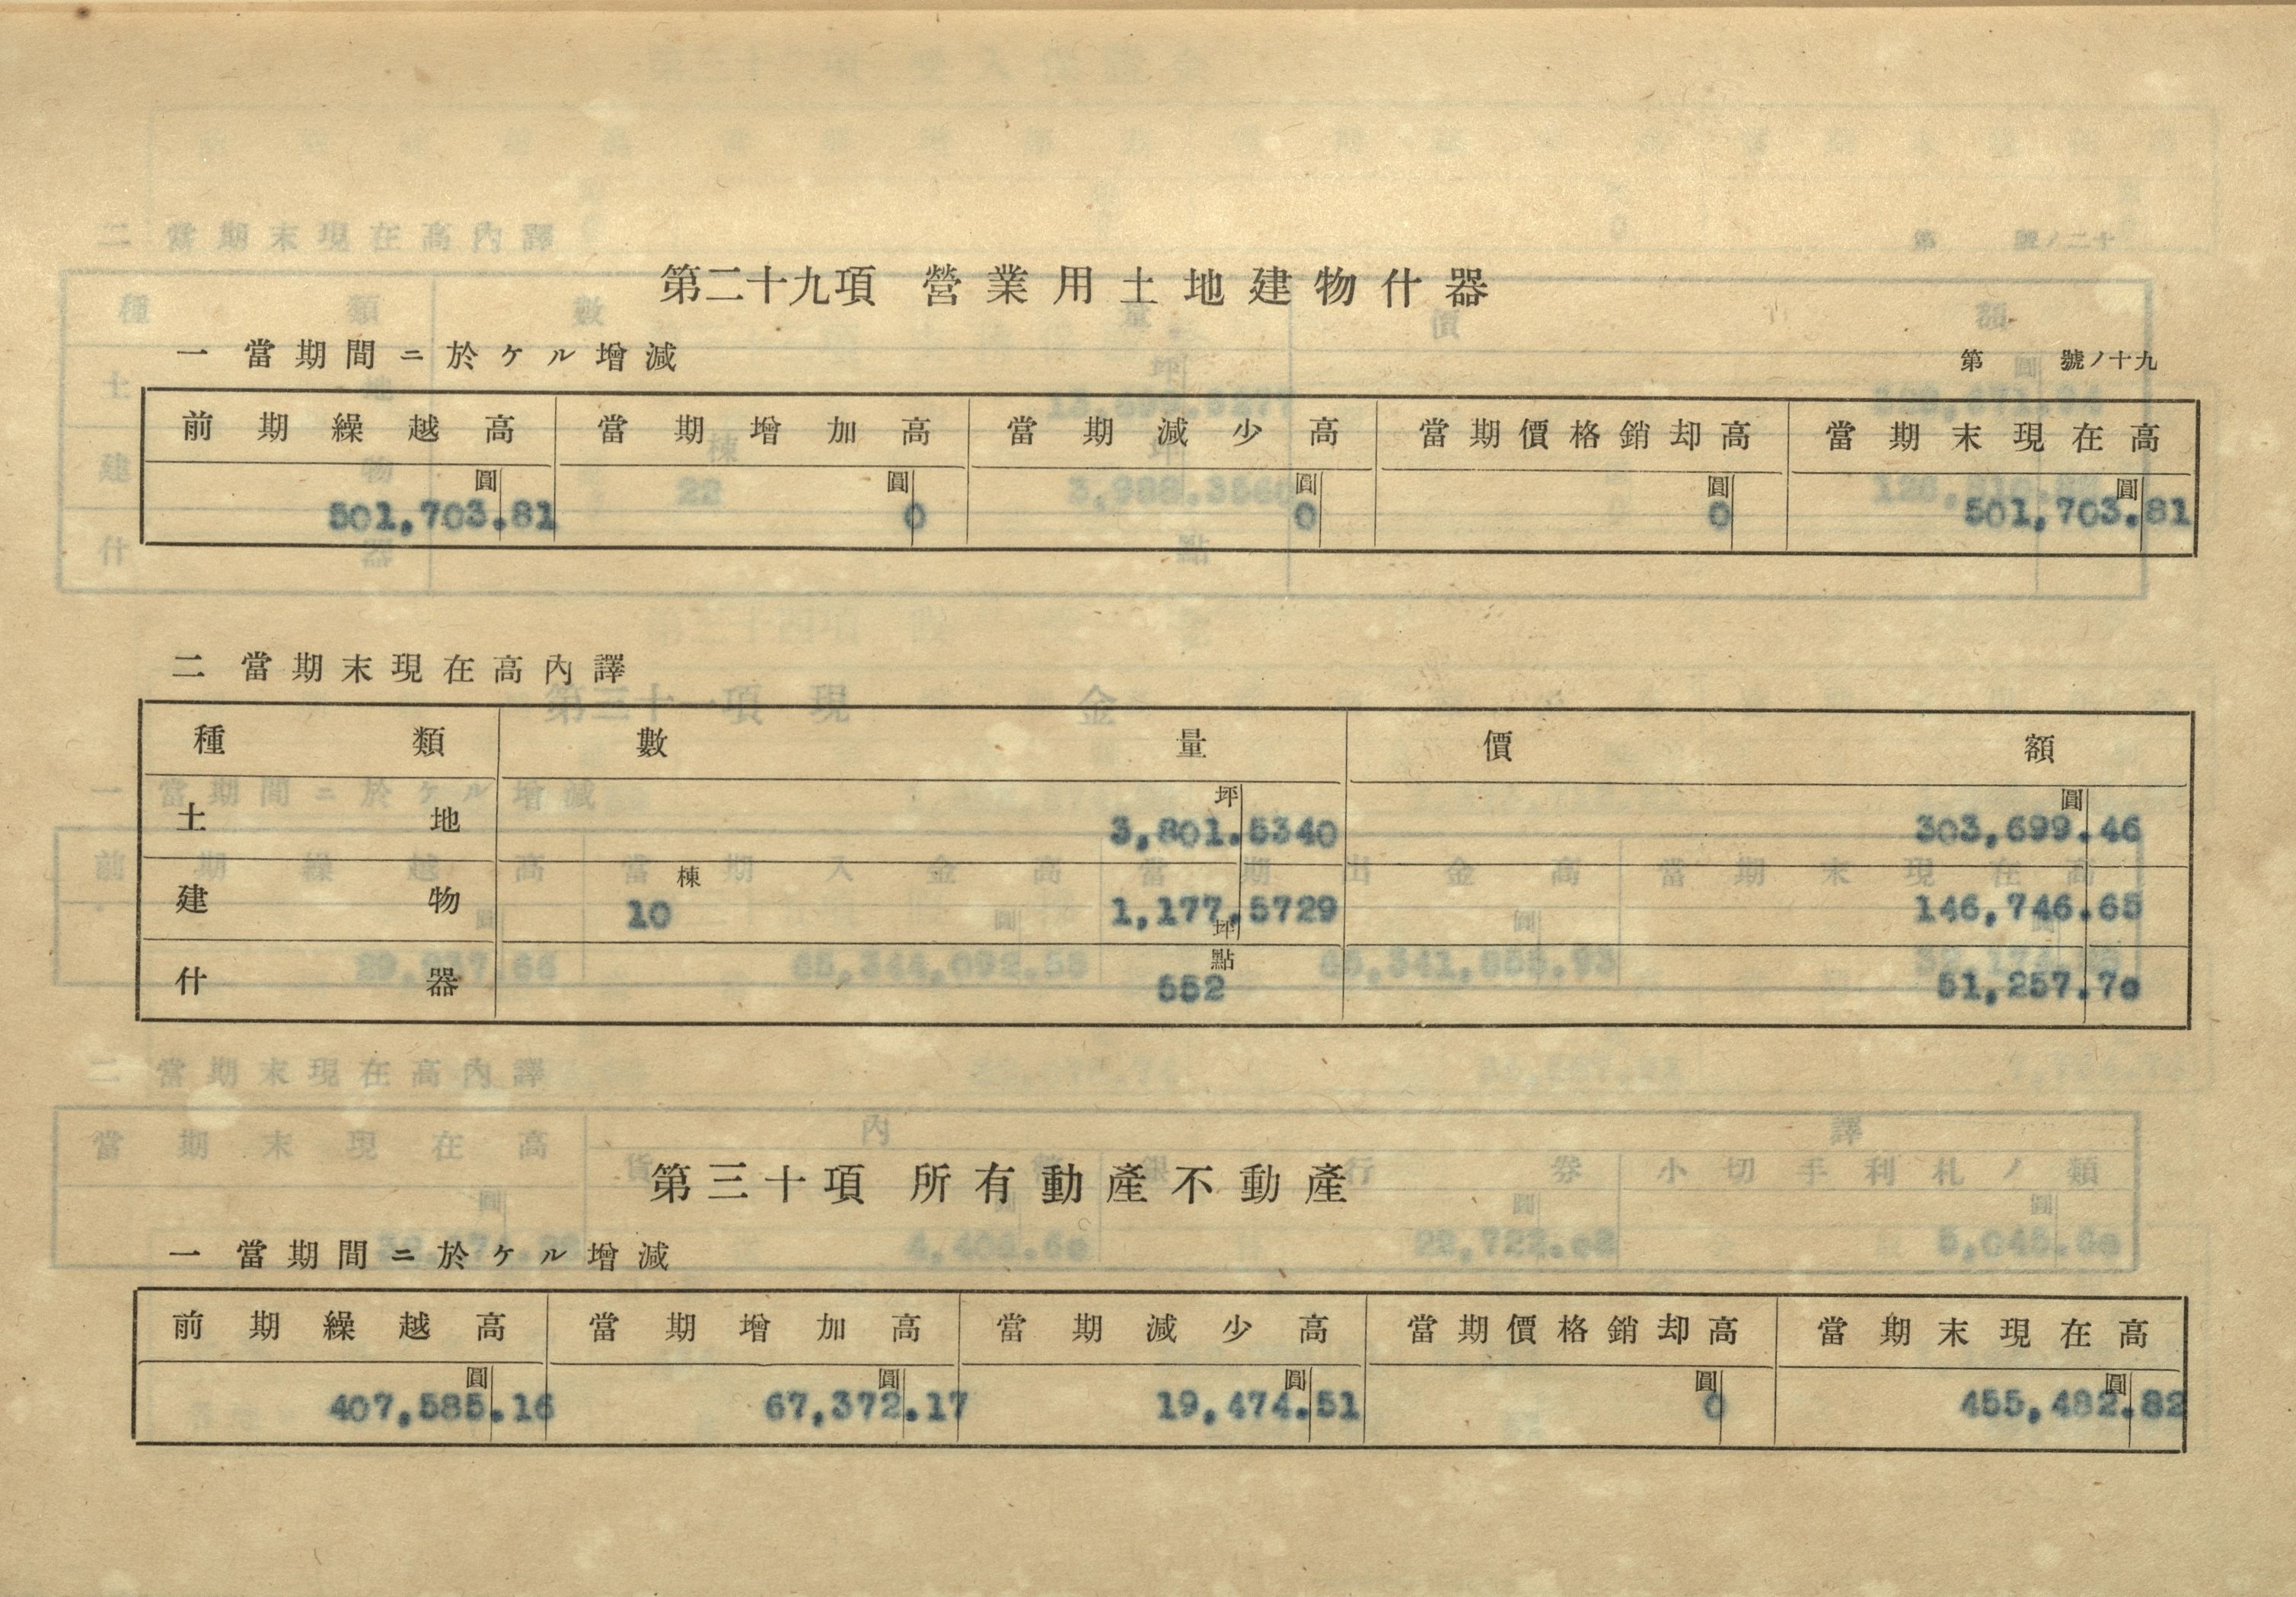 第二十九項 營業用土地建物什器
一 當期間ニ於ケル增減 第 號ノ十九
前期繰越高 當期增加高 當期減少高 當期價格銷却高 當期末現在高
圓 圓 圓 圓 圓
501,703.81 0 0 0 501,703.81
二 當期末現在高內譯
種類 數量 價額
土地 坪 3,801.5340 圓 303,699.46
建物 棟 10 1,177.5729 坪 146,746.65
什器 點 552 51,257.70
第三十項 所有動產不動產
一 當期間ニ於ケル增減
前期繰越高 當期增加高 當期減少高 當期價格銷却高 當期末現在高
圓 圓 圓 圓 圓
407,585.16 67,372.17 19,474.51 0 455,482.82